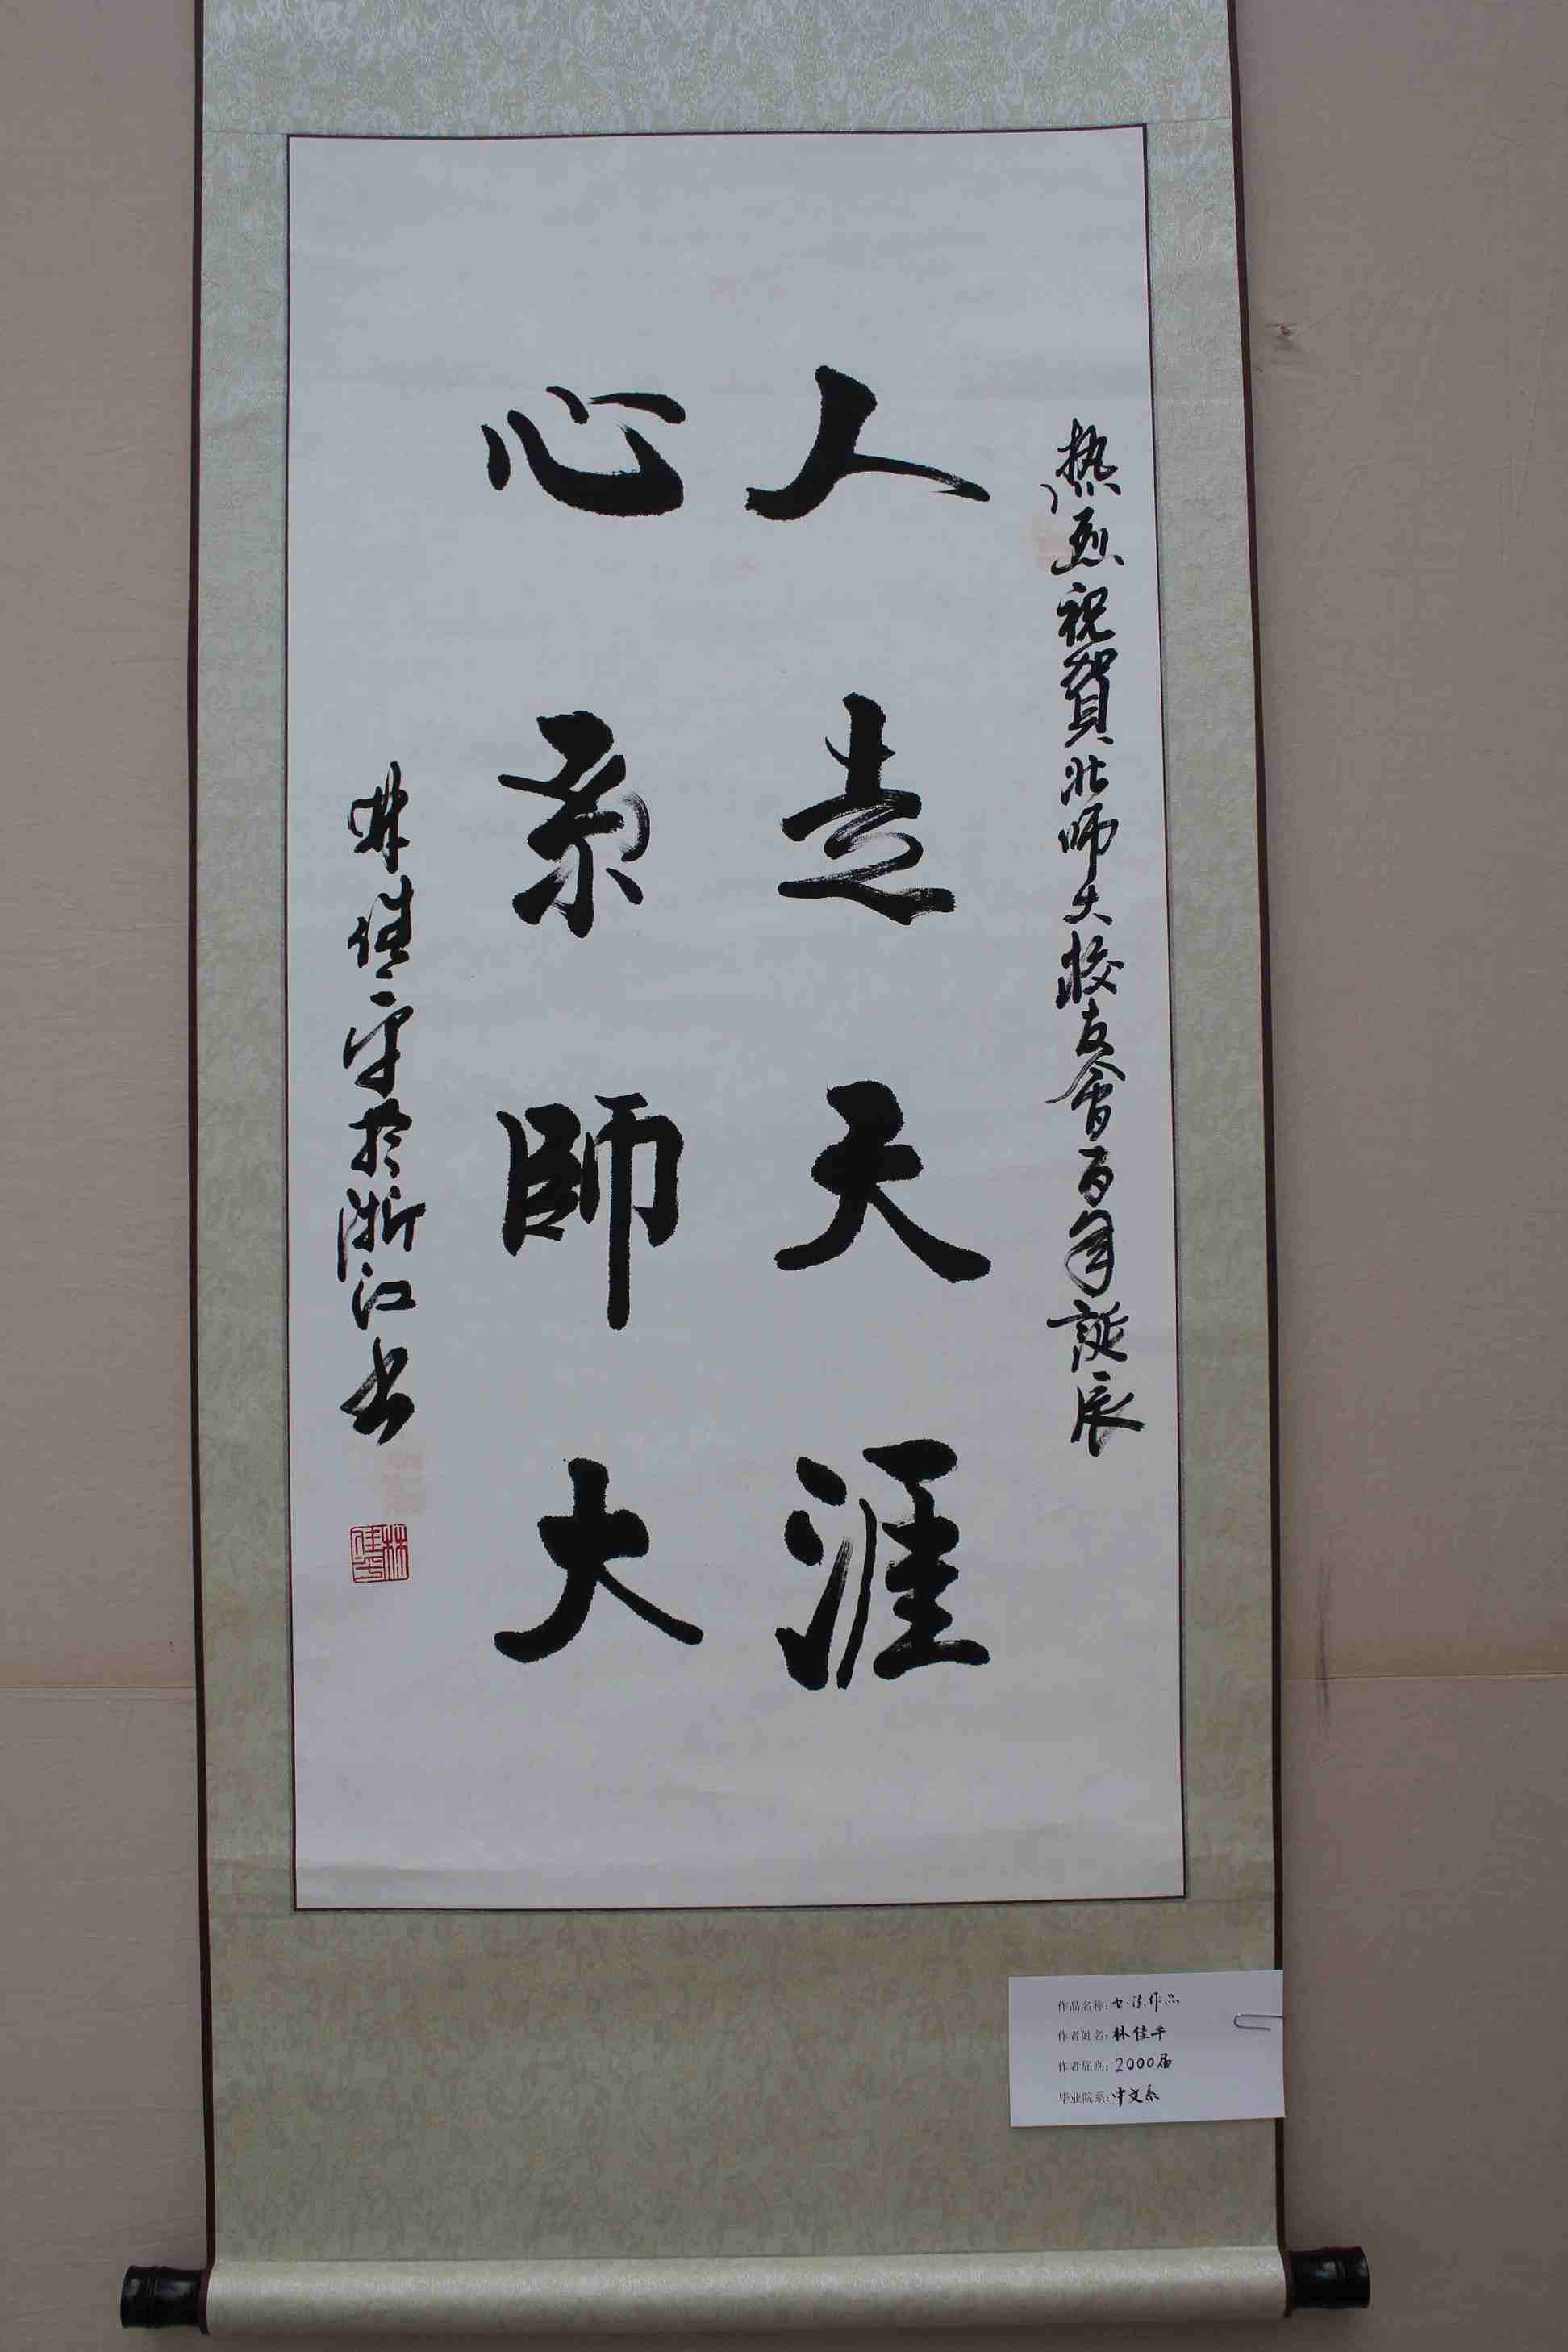 热烈祝賀北师大校友會百年誕辰
人走天涯
心系師大
林佳平於浙江书
林佳平
作品名称：书法作品
作者姓名：林佳平
作者届别：2000届
毕业院系：中文系